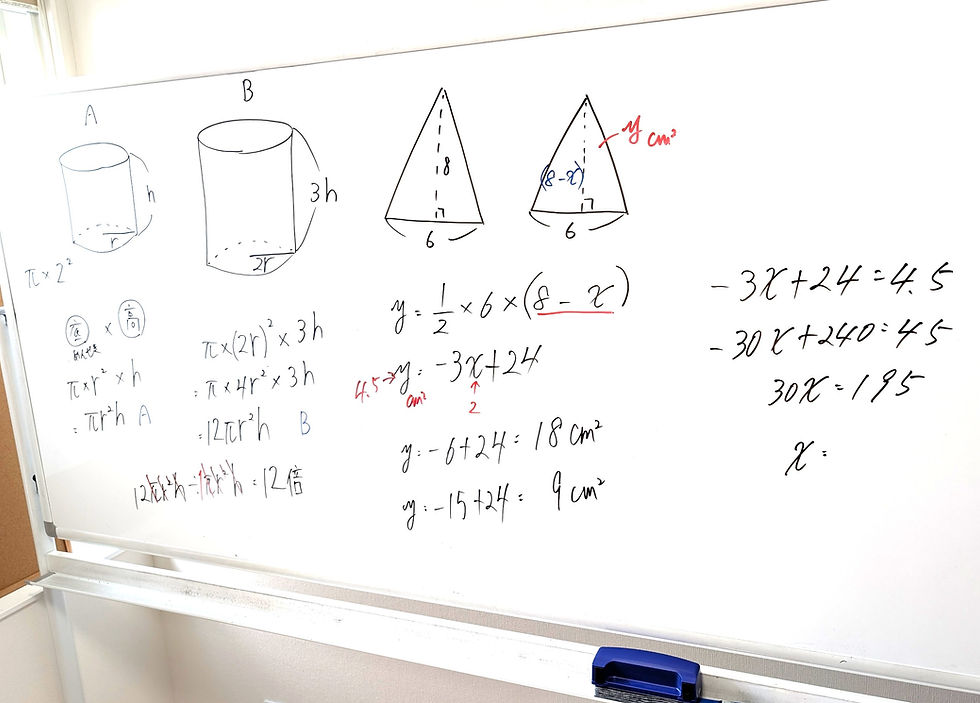 A
h
r
π×2²
底 × 高
π×r²×h
=πr²h A
B
3h
2r
π×(2r)²×3h
=π×4r²×3h
=12πr²h B
12πr²h÷1πr²h=12倍
8
6
(8-x)
6
y cm²
y=1/2×6×(8-x)
4.5→y=-3x+24
cm²
↑
2
y=-6+24=18cm²
y=-15+24= 9cm²
-3x+24=4.5
-30x+240=45
30x=195
x=